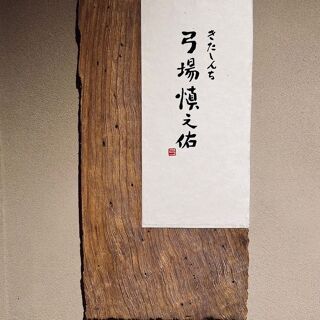 きたしんち
弓場慎之佑